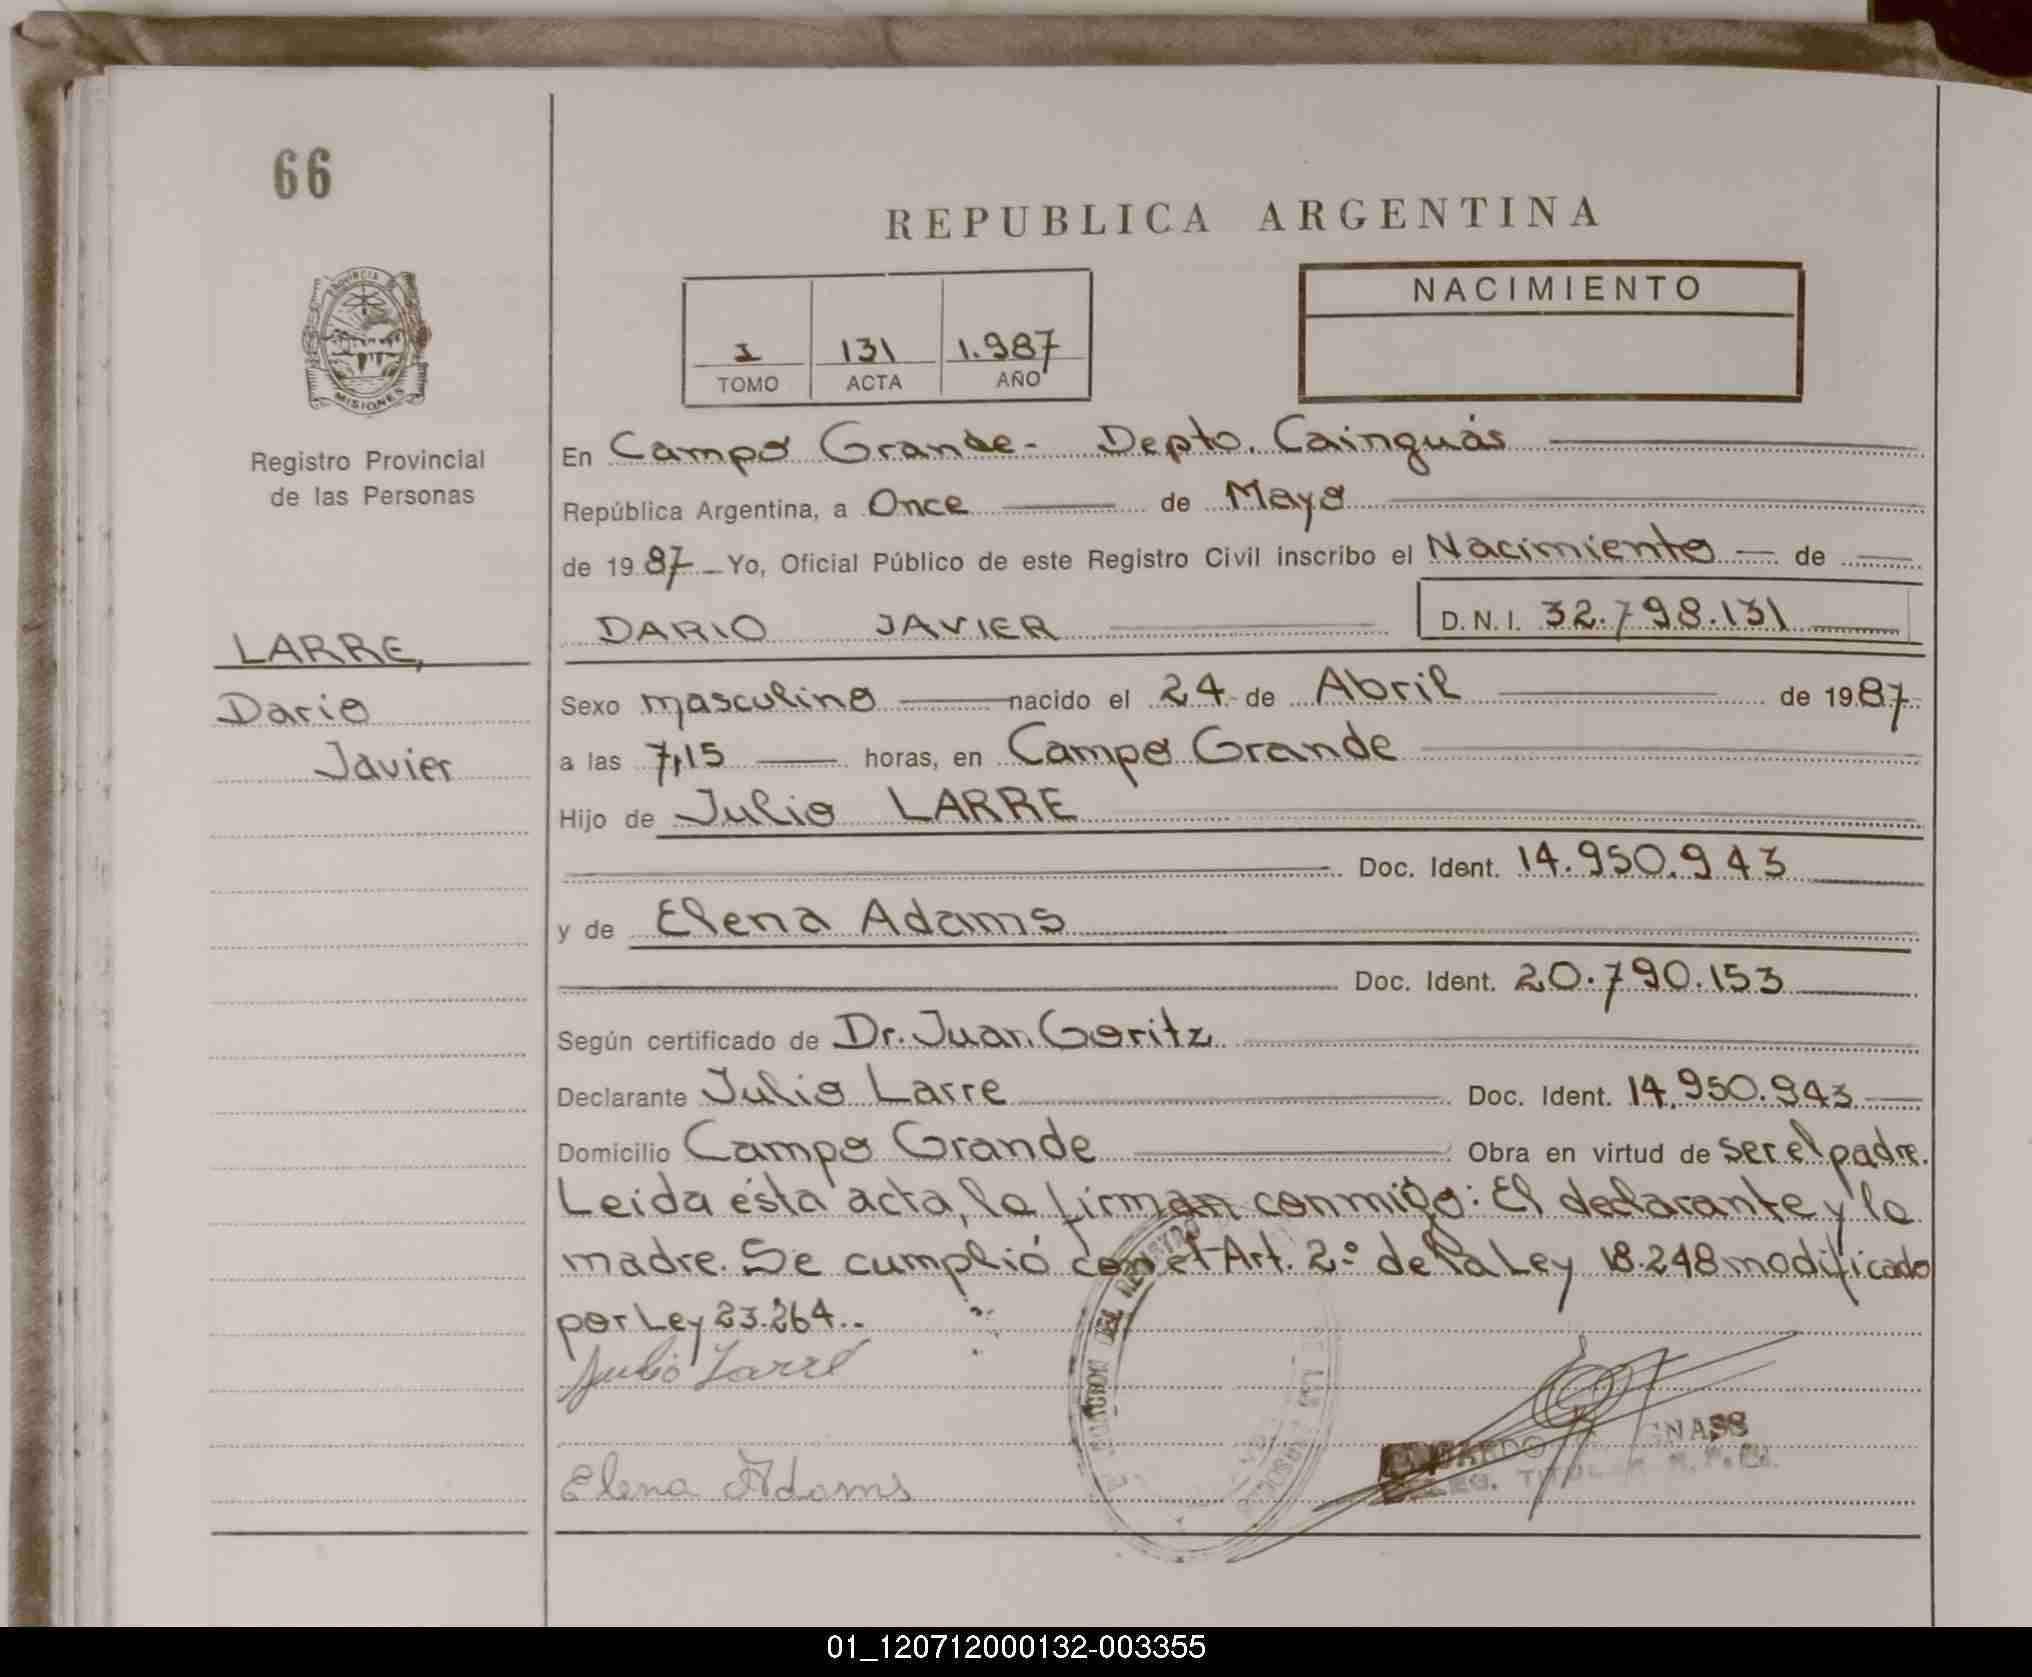 66
REPUBLICA ARGENTINA
PROVINCIA DE
MISIONES
Registro Provincial
de las Personas
NACIMIENTO
1 131 1.987
TOMO ACTA AÑO
En Campo Grande- Depto. Cainguás
República Argentina, a Once de Mayo
de 1987 Yo, Oficial Público de este Registro Civil inscribo el Nacimiento de
DARIO JAVIER D.N.I. 32.798.131
LARRE,
Dario
Javier
Sexo masculino nacido el 24 de Abril de 1987
a las 7,15 horas, en Campo Grande
Hijo de Julio LARRE
Doc. Ident. 14.950.943
y de Elena Adams
Doc. Ident. 20.790.153
Según certificado de Dr. Juan Goritz
Declarante Julio Larre Doc. Ident. 14.950.943
Domicilio Campo Grande Obra en virtud de ser el padre.
Leida ésta acta, la firman conmigo: El declarante y la
madre. Se cumplió con el Art. 2º de la Ley 18.248 modificado
por Ley 23.264..
Julio Larre
Elena Adams
DEL REGISTRO
DE LAS
TITULAR
01_120712000132-003355